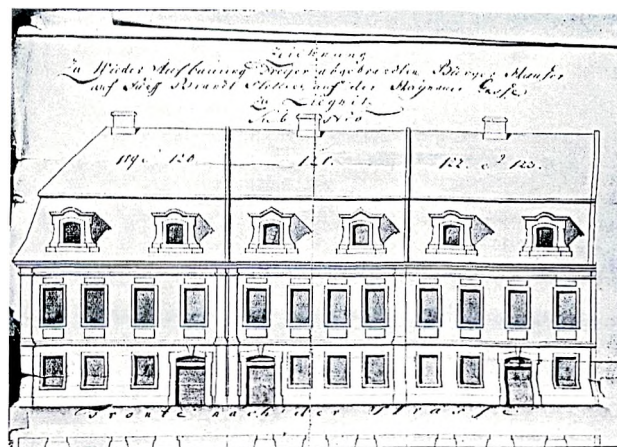 Zeichnung
Zu Wieder Aufbauung Dreyer abgebrandten Bürger Häuser
auf Fünff Brandt Stellen auf der Haynauer Gasse
Zu Liegnitz
Sub
119 & 120 121. 122. & 123.
Fronte nach der Strasse